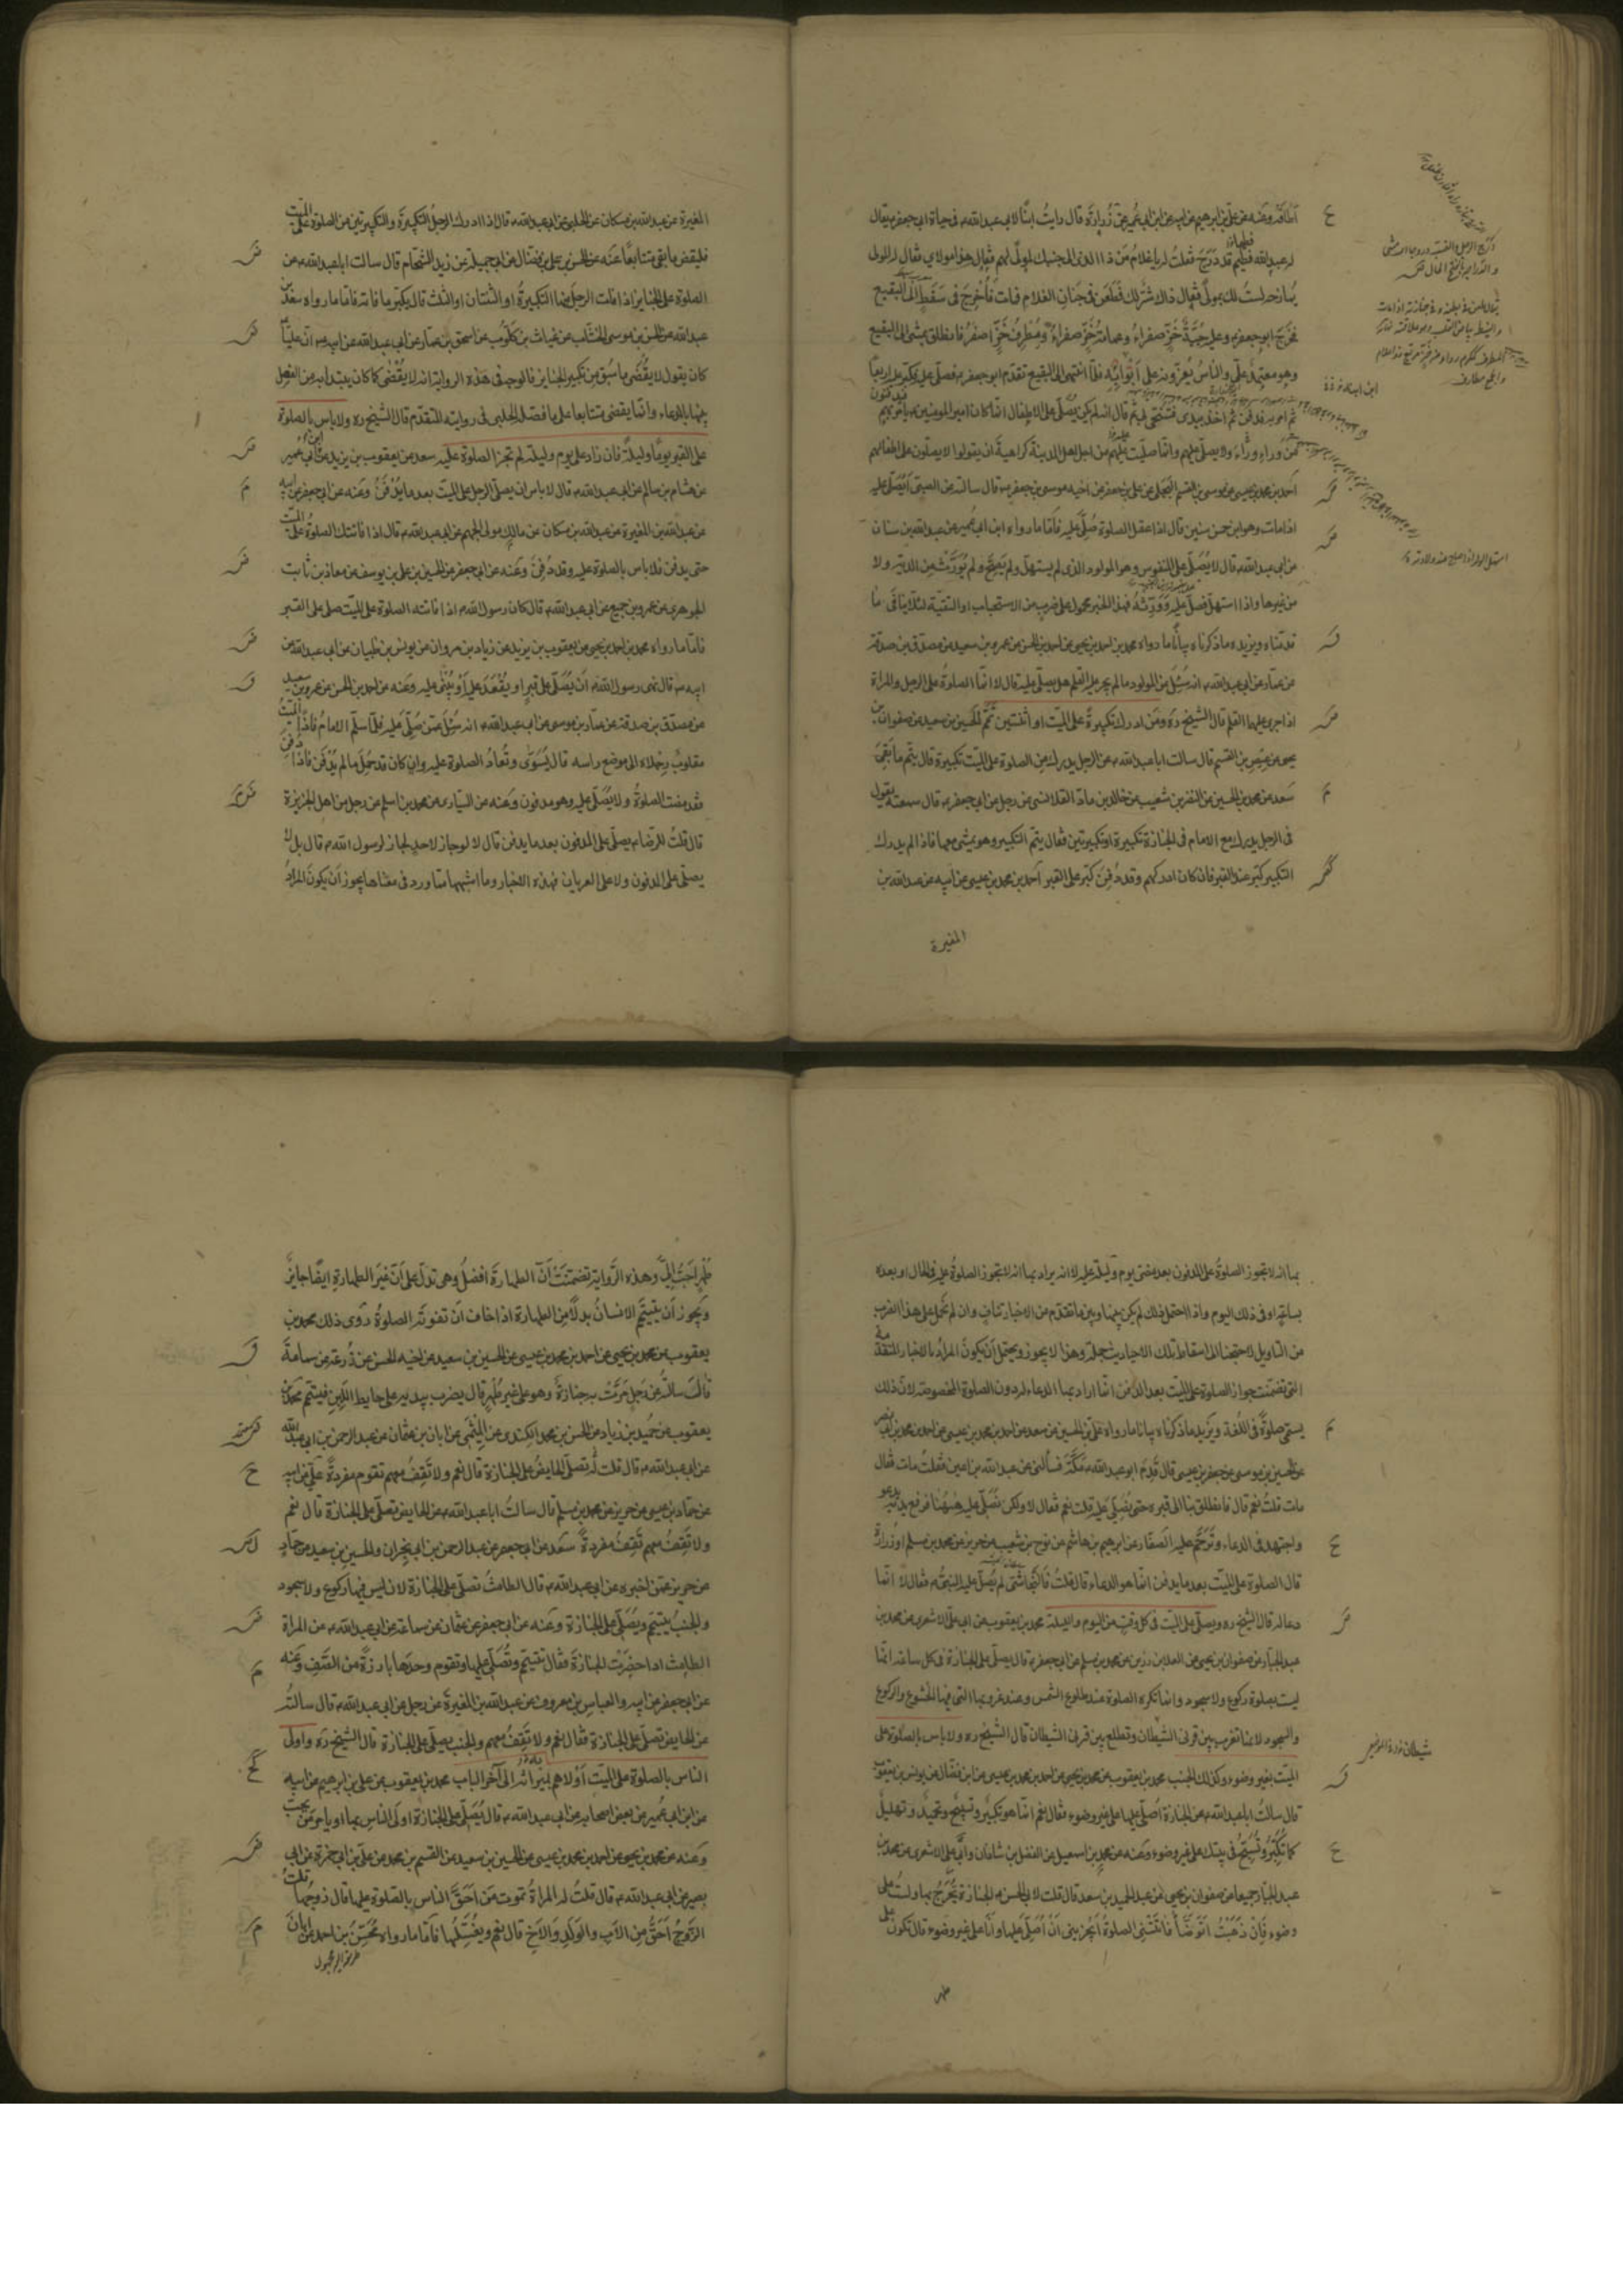 اطاقته وعنه عن علي بن ابراهيم عن ابيه عن ابن ابي عمير عن زرارة قال رايت ابنا لابي عبد الله م في حياة ابي جعفر م يقال
له عبد الله فطيم قد درج فقلت له يا غلام من ذا الذي الى جنبك لمولى لهم فقال هذا مولاي فقال له المولى
يمازحه لست لك بمولى فقال ذاك شر لك فطعن في جنان الغلام فمات فاخرج في سفط الى البقيع
فخرج ابو جعفر م وعليه جبة خز صفراء وعمامة خز صفراء ومطرف خز اصفر فانطلق يمشي الى البقيع
وهو معتمد علي والناس يعزونه على ابنه فلما انتهى الى البقيع تقدم ابو جعفر م فصلى عليه وكبر عليه اربعا
ثم امر به فدفن ثم اخذ بيدي فتنحى بي ثم قال انه لم يكن يصلى على الاطفال انما كان امير المومنين م يامر بهم
فيدفنون
من وراء وراء ولا يصلي عليهم وانما صليت عليهم من اجل اهل المدينة كراهية ان يقولوا لا يصلون على اطفالهم
احمد بن محمد بن عيسى عن موسى بن القسم البجلي عن علي بن جعفر عن اخيه موسى بن جعفر م قال سالته عن الصبي ايصلى عليه
اذا مات وهو ابن خمس سنين قال اذا عقل الصلوة صلي عليه فاما ما رواه ابن ابي عمير عن عبد الله بن سنان
عن ابي عبد الله م قال لا يصلى على المنفوس وهو المولود الذي لم يستهل ولم يصح ولم يورث من الدية ولا
من غيرها واذا استهل فصل عليه وورثه فهذا الخبر محمول على ضرب من الاستحباب او التقية لئلا ينافي ما
قدمناه ويزيد ما ذكرناه بيانا ما رواه محمد بن احمد بن يحيى عن احمد بن الحسن عن عمرو بن سعيد عن مصدق بن صدقة
عن عمار عن ابي عبد الله م انه سئل عن المولود ما لم يجر عليه القلم هل يصلى عليه قال لا انما الصلوة على الرجل والمراة
اذا جرى عليهما القلم قال الشيخ ره ومن ادرك تكبيرة على الميت او اثنتين تمم الحسين بن سعيد عن صفوان بن
يحيى عن عيص بن القسم قال سالت ابا عبد الله م عن الرجل يدرك من الصلوة على الميت تكبيرة قال يتم ما بقي
سعد عن محمد بن الحسين عن النضر بن شعيب عن خالد بن ماد القلانسي عن رجل عن ابي جعفر م قال سمعته يقول
في الرجل يدرك مع الامام في الجنازة تكبيرة او تكبيرتين فقال يتم التكبير وهو يمشي معها فاذا لم يدرك
التكبير كبر عند القبر فان كان ادركهم وقد دفن كبر على القبر احمد بن محمد بن عيسى عن ابيه عن عبد الله بن
المغيرة
المغيرة عن عبد الله بن مسكان عن الحلبي عن ابي عبد الله م قال اذا ادرك الرجل التكبيرة والتكبيرتين من الصلوة على الميت
فليقض ما بقي متتابعا عنه عن الحسن بن علي بن فضال عن ابي جميلة عن زيد الشحام قال سالت ابا عبد الله م عن
الصلوة على الجنايز اذا فات الرجل منها التكبيرة او الثنتان او الثلث قال يكبر ما فاته فاما ما رواه سعد بن
عبد الله عن الحسن بن موسى الخشاب عن غياث بن كلوب عن اسحق بن عمار عن ابي عبد الله عن ابيه م ان عليا
كان يقول لا يقضى ما سبق من تكبير الجنايز فالوجه في هذه الرواية انه لا يقضى كما كان يبتدا به من الفصل
بينها بالدعاء وانما يقضى متتابعا على ما فصله الحلبي في روايته المتقدم قال الشيخ ره ولا باس بالصلوة
على القبر يوما وليلة فان زاد على يوم وليلة لم تجز الصلوة عليه سعد عن يعقوب بن يزيد عن ابن ابي عمير
عن هشام بن سالم عن ابي عبد الله م قال لا باس ان يصلي الرجل على الميت بعد ما يدفن وعنه عن ابي جعفر عن ابيه
عن عبد الله بن المغيرة عن عبد الله بن مسكان عن مالك مولى الجهم عن ابي عبد الله م قال اذا فاتتك الصلوة على الميت
حتى يدفن فلا باس بالصلوة عليه وقد دفن وعنه عن ابي جعفر عن الحسين بن علي بن يوسف عن معاذ بن ثابت
الجوهري عن عمرو بن جميع عن ابي عبد الله م قال كان رسول الله م اذا فاتته الصلوة على الميت صلى على القبر
فاما ما رواه محمد بن احمد بن يحيى عن يعقوب بن يزيد عن زياد بن مروان عن يونس بن ظبيان عن ابي عبد الله عن
ابيه م قال نهى رسول الله م ان يصلى على قبر او يقعد عليه او يبنى عليه وعنه عن احمد بن الحسن عن عمرو بن سعيد
عن مصدق بن صدقة عن عمار بن موسى عن ابي عبد الله م انه سئل عمن صلي عليه فلما سلم الامام فاذا الميت
مقلوب رجلاه الى موضع راسه قال يسوى وتعاد الصلوة عليه وان كان قد حمل ما لم يدفن فاذا دفن
فقد مضت الصلوة ولا يصلى عليه وهو مدفون وعنه عن السياري عن محمد بن اسلم عن رجل من اهل الجزيرة
قال قلت للرضا م يصلى على المدفون بعد ما يدفن قال لا لو جاز لاحد لجاز لرسول الله م قال بل لا
يصلى على المدفون ولا على العريان فهذه الاخبار وما اشبهها مما ورد في معناها يجوز ان يكون المراد
بها انه لا تجوز الصلوة على المدفون بعد مضي يوم وليلة عليه لا انه يراد بها انه لا تجوز الصلوة عليه في الحال او بعده
بساعة او في ذلك اليوم واذا احتمل ذلك لم يكن بينها وبين ما تقدم من الاخبار تناف وان لم تحمل على هذا الضرب
من التاويل لاحتجنا الى اسقاط تلك الاحاديث جملة وهذا لا يجوز ويحتمل ان يكون المراد بالاخبار المتقدمة
التي تضمنت جواز الصلوة على الميت بعد الدفن انما اراد بها الدعاء له دون الصلوة المخصوصة لان ذلك
يسمى صلوة في اللغة ويزيد ما ذكرناه بيانا ما رواه علي بن الحسين عن سعد عن احمد بن محمد بن عيسى عن احمد بن محمد بن ابي نصر
عن الحسين بن موسى عن جعفر بن عيسى قال قدم ابو عبد الله م مكة فسألني عن عبد الله بن اعين فقلت مات فقال
مات قلت نعم قال فانطلق بنا الى قبره حتى نصلي عليه قلت نعم فقال لا ولكن نصلي عليه ههنا فرفع يديه يدعو
واجتهد في الدعاء وترحم عليه الصفار عن ابرهيم بن هاشم عن نوح بن شعيب عن حريز عن محمد بن مسلم او زرارة
قال الصلوة على الميت بعد ما يدفن انما هو الدعاء قال قلت فالنجاشي لم يصل عليه النبي م فقال لا انما
دعا له قال الشيخ ره ويصلى على الميت في كل وقت من اليوم والليلة محمد بن يعقوب عن ابي علي الاشعري عن محمد بن
عبد الجبار عن صفوان بن يحيى عن العلا بن رزين عن محمد بن مسلم عن ابي جعفر م قال يصلى على الجنازة في كل ساعة انما
ليست بصلوة ركوع ولا سجود وانما تكره الصلوة عند طلوع الشمس وعند غروبها التي فيها الخشوع والركوع
والسجود لانها تغرب بين قرني الشيطان وتطلع بين قرني الشيطان قال الشيخ ره ولا باس بالصلوة على
الميت بغير وضوء وكذلك الجنب محمد بن يعقوب عن محمد بن يحيى عن احمد بن محمد بن عيسى عن ابن فضال عن يونس بن يعقوب
قال سالت ابا عبد الله م عن الجنازة اصلي عليها على غير وضوء فقال نعم انما هو تكبير وتسبيح وتحميد وتهليل
كما تكبر وتسبح في بيتك على غير وضوء وعنه عن محمد بن اسمعيل عن الفضل بن شاذان وابي علي الاشعري عن محمد بن
عبد الجبار جميعا عن صفوان بن يحيى عن عبد الحميد بن سعد قال قلت لابي الحسن م الجنازة يخرج بها ولست على
وضوء فان ذهبت اتوضا فاتتني الصلوة ايجزيني ان اصلي عليها وانا على غير وضوء قال تكون على
طهر
طهر احب الي وهذه الرواية تضمنت ان الطهارة افضل وهي تدل على ان غير الطهارة ايضا جايز
ويجوز ان يتيمم الانسان بدلا من الطهارة اذا خاف ان تفوته الصلوة روى ذلك محمد بن
يعقوب عن محمد بن يحيى عن احمد بن محمد بن عيسى عن الحسين بن سعيد عن اخيه الحسن عن زرعة عن سماعة
قال سالته عن رجل مرت به جنازة وهو على غير طهر قال يضرب بيديه على حايط اللبن فيتيمم محمد بن
يعقوب عن حميد بن زياد عن الحسن بن محمد الكندي عن الميثمي عن ابان بن عثمان عن عبد الرحمن بن ابي عبد الله
عن ابي عبد الله م قال قلت له تصلي الحايض على الجنازة قال نعم ولا تقف معهم تقوم مفردة علي عن ابيه
عن حماد بن عيسى عن حريز عن محمد بن مسلم قال سالت ابا عبد الله م عن الحايض تصلي على الجنازة قال نعم
ولا تقف معهم تقف مفردة سعد عن ابي جعفر عن عبد الرحمن بن ابي نجران والحسين بن سعيد عن حماد
عن حريز عمن اخبره عن ابي عبد الله م قال الطامث تصلي على الجنازة لان ليس فيها ركوع ولا سجود
والجنب يتيمم ويصلي على الجنازة وعنه عن ابي جعفر عن عثمان عن سماعة عن ابي عبد الله م عن المراة
الطامث اذا حضرت الجنازة فقال تتيمم وتصلي عليها وتقوم وحدها بارزة من الصف وعنه
عن ابي جعفر عن ابيه والعباس بن معروف عن عبد الله بن المغيرة عن رجل عن ابي عبد الله م قال سالته
عن الحايض تصلي على الجنازة فقال نعم ولا تقف معهم والجنب يصلي على الجنازة قال الشيخ ره واولى
الناس بالصلوة على الميت اولاهم بميراثه الى آخر الباب محمد بن يعقوب عن علي بن ابرهيم عن ابيه
عن ابن ابي عمير عن بعض اصحابه عن ابي عبد الله م قال يصلي على الجنازة اولى الناس بها او يامر من يحب
وعنه عن محمد بن يحيى عن احمد بن محمد بن عيسى عن الحسين بن سعيد عن القسم بن محمد عن علي بن ابي حمزة عن ابي
بصير عن ابي عبد الله م قال قلت له المراة تموت من احق الناس بالصلوة عليها قال زوجها قلت
الزوج احق من الاب والولد والاخ قال نعم ويغسلها فاما ما رواه محسن بن احمد عن ابان